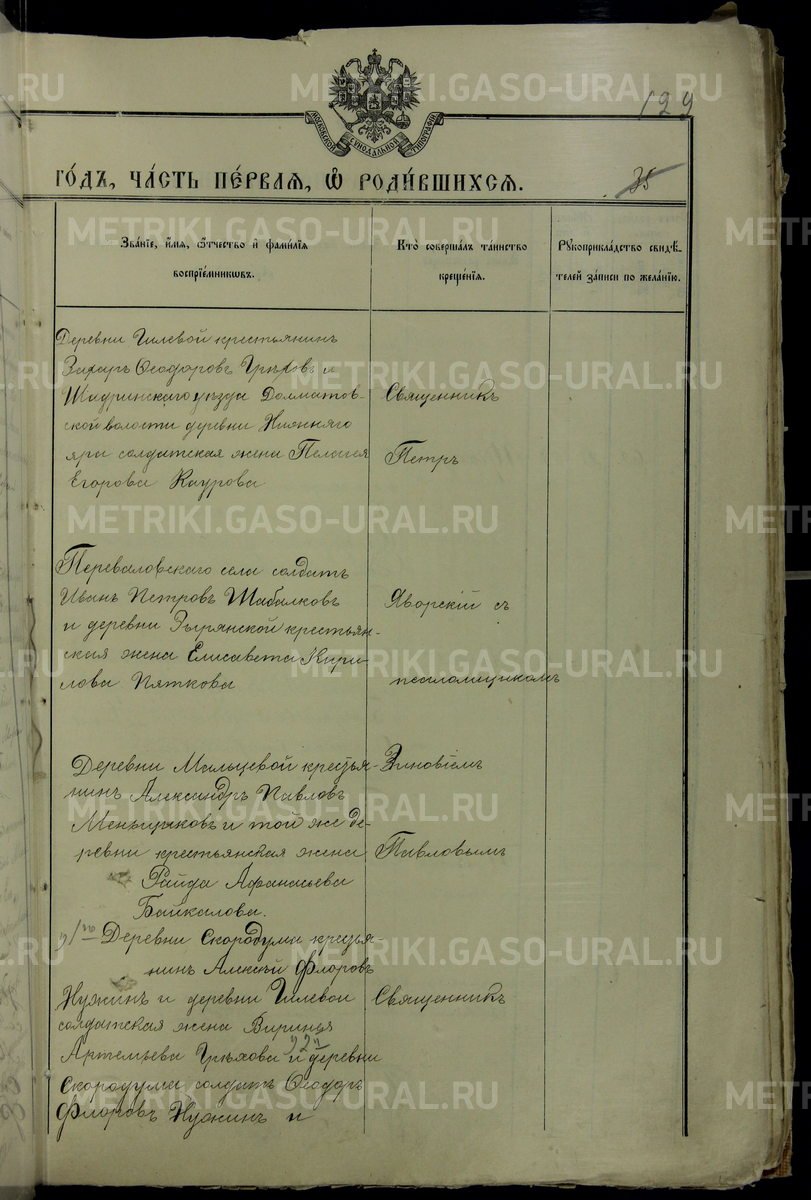 129
МОСКОВСКОЙ СУНОДАЛЬНОЙ ТИПОГРАФІИ
ГО́ДЪ, ЧА́СТЬ ПЕ́РВАЯ, Ѽ РОДИ́ВШИХСЯ.
35
Зва́ніе, и҆́мя, Ѻ҆́тчество и҆ фами́лія
воспріе́мниковъ.
Кто̀ соверша́лъ та́инство
креще́нія.
Рꙋкоприкла́дство свидѣ́-
телей за́писи по жела́нію.
Деревни Гилевой крестьянинъ
Захаръ Ѳеодоровъ Грѣховъ и
Шадринскаго уѣзда Долматов-
ской волости деревни Нижняго
яра солдатская жена Пелагея
Егорова Каурова
Священникъ
Петръ
Переваловскаго села солдатъ
Иванъ Петровъ Шабалковъ
и деревни Зырянской крестьян-
ская жена Елисавета Кири-
лова Пяткова
Яворскій съ
псаломщикомъ
Деревни Мальцевой крестья-
нинъ Александръ Павловъ
Меньщиковъ и той же де-
ревни крестьянская жена
Раида Афанасьева
Байкалова.
Зиновіемъ
Павловымъ
Деревни Скородума крестья-
нинъ Алексѣй Флоровъ
Нужинъ и деревни Гилевой
солдатская жена Виринея
Артемьева Грѣхова и деревни
Скородума солдатъ Ѳеодоръ
Флоровъ Нужинъ и
Священникъ
METRIKI.GASO-URAL.RU